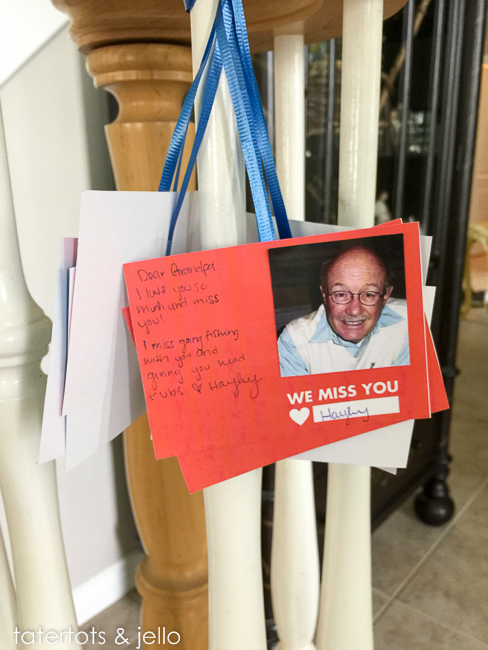 Dear Grandpa
I love you so
much and miss
you!
I miss going fishing
with you and
giving you head
rubs ♥ Hayley
WE MISS YOU
Hayley
tatertots & jello